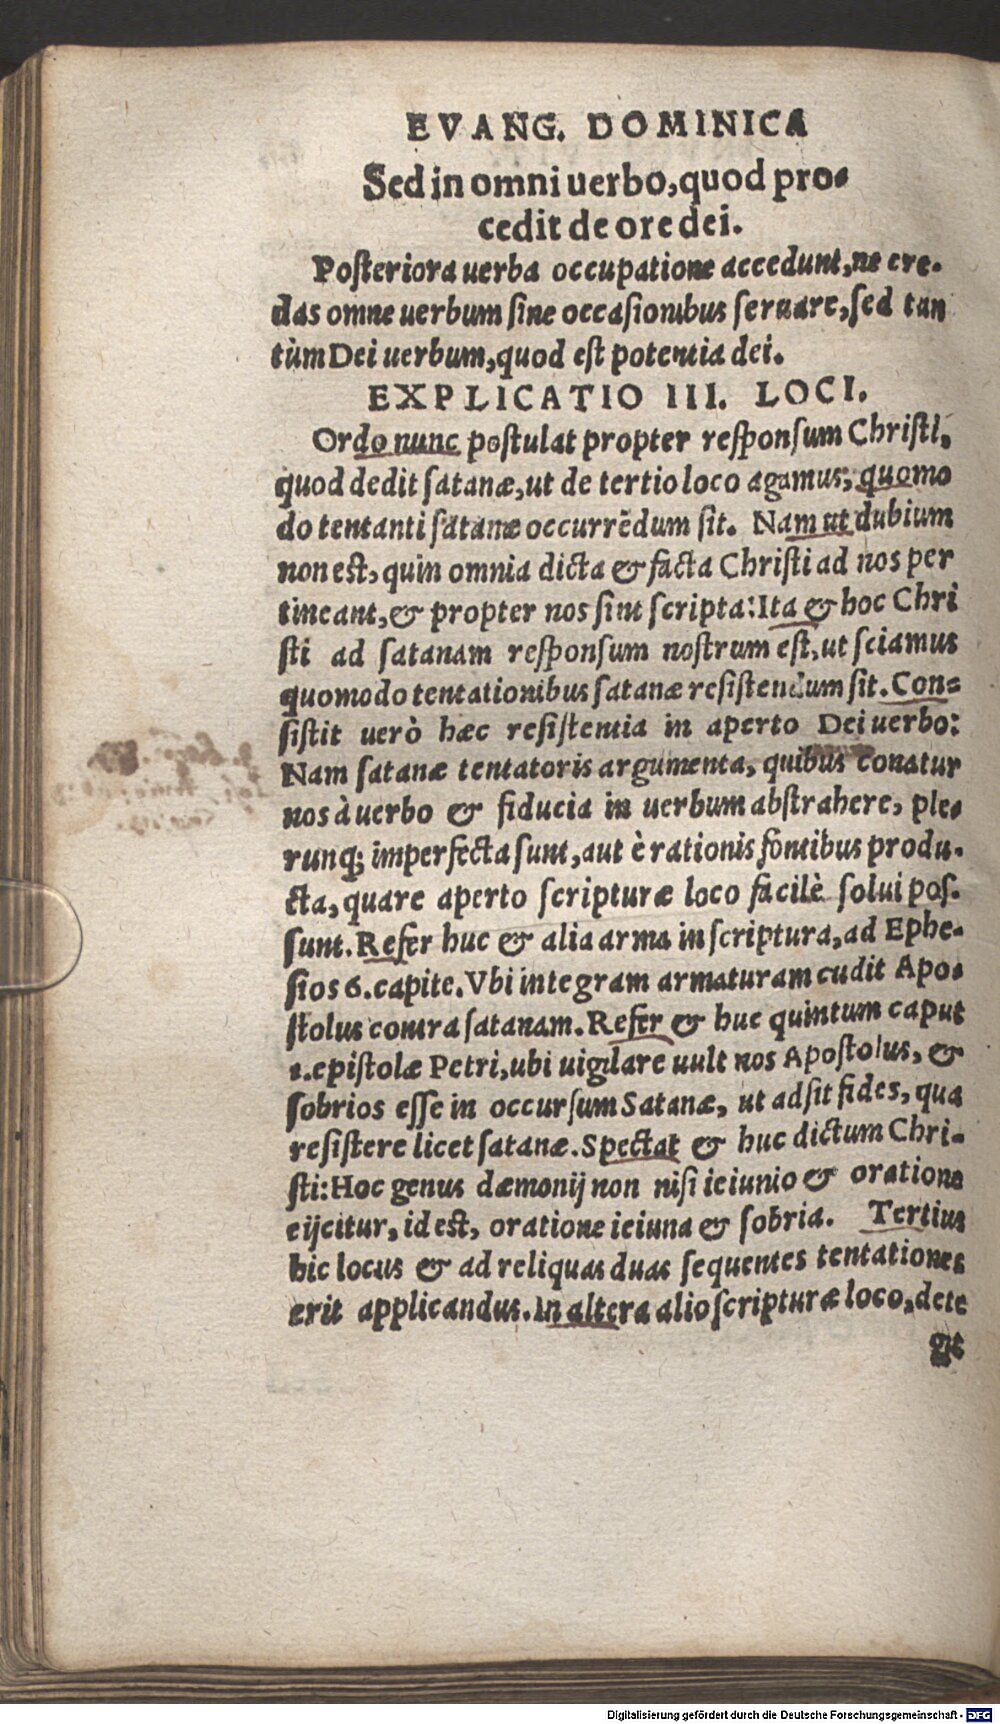 EVANG. DOMINICA
Sed in omni uerbo, quod pro-
cedit de ore dei.
Posteriora uerba occupatione accedunt, ne cre-
das omne uerbum sine occasionibus seruare, sed tan
tùm Dei uerbum, quod est potentia dei.
EXPLICATIO III. LOCI.
Ordo nunc postulat propter responsum Christi,
quod dedit satanæ, ut de tertio loco agamus, quomo
do tentanti satanæ occurrēdum sit. Nam ut dubium
non est, quin omnia dicta & facta Christi ad nos per
tineant, & propter nos sint scripta: Ita & hoc Chri
sti ad satanam responsum nostrum est, ut sciamus
quomodo tentationibus satanæ resistendum sit. Con-
sistit uerò hæc resistentia in aperto Dei uerbo:
Nam satanæ tentatoris argumenta, quibus conatur
nos à uerbo & fiducia in uerbum abstrahere, ple-
runq; imperfecta sunt, aut è rationis fontibus produ-
cta, quare aperto scripturæ loco facilè solui pos-
sunt. Refer huc & alia arma in scriptura, ad Ephe-
sios 6. capite. Vbi integram armaturam cudit Apo-
stolus contra satanam. Refer & huc quintum caput
1. epistolæ Petri, ubi uigilare uult nos Apostolus, &
sobrios esse in occursum Satanæ, ut adsit fides, qua
resistere licet satanæ. Spectat & huc dictum Chri-
sti: Hoc genus dæmonij non nisi ieiunio & oratione
eijcitur, id est, oratione ieiuna & sobria. Tertius
hic locus & ad reliquas duas sequentes tentationes
erit applicandus. In altera alio scripturæ loco, dete
git
Digitalisierung gefördert durch die Deutsche Forschungsgemeinschaft - DFG